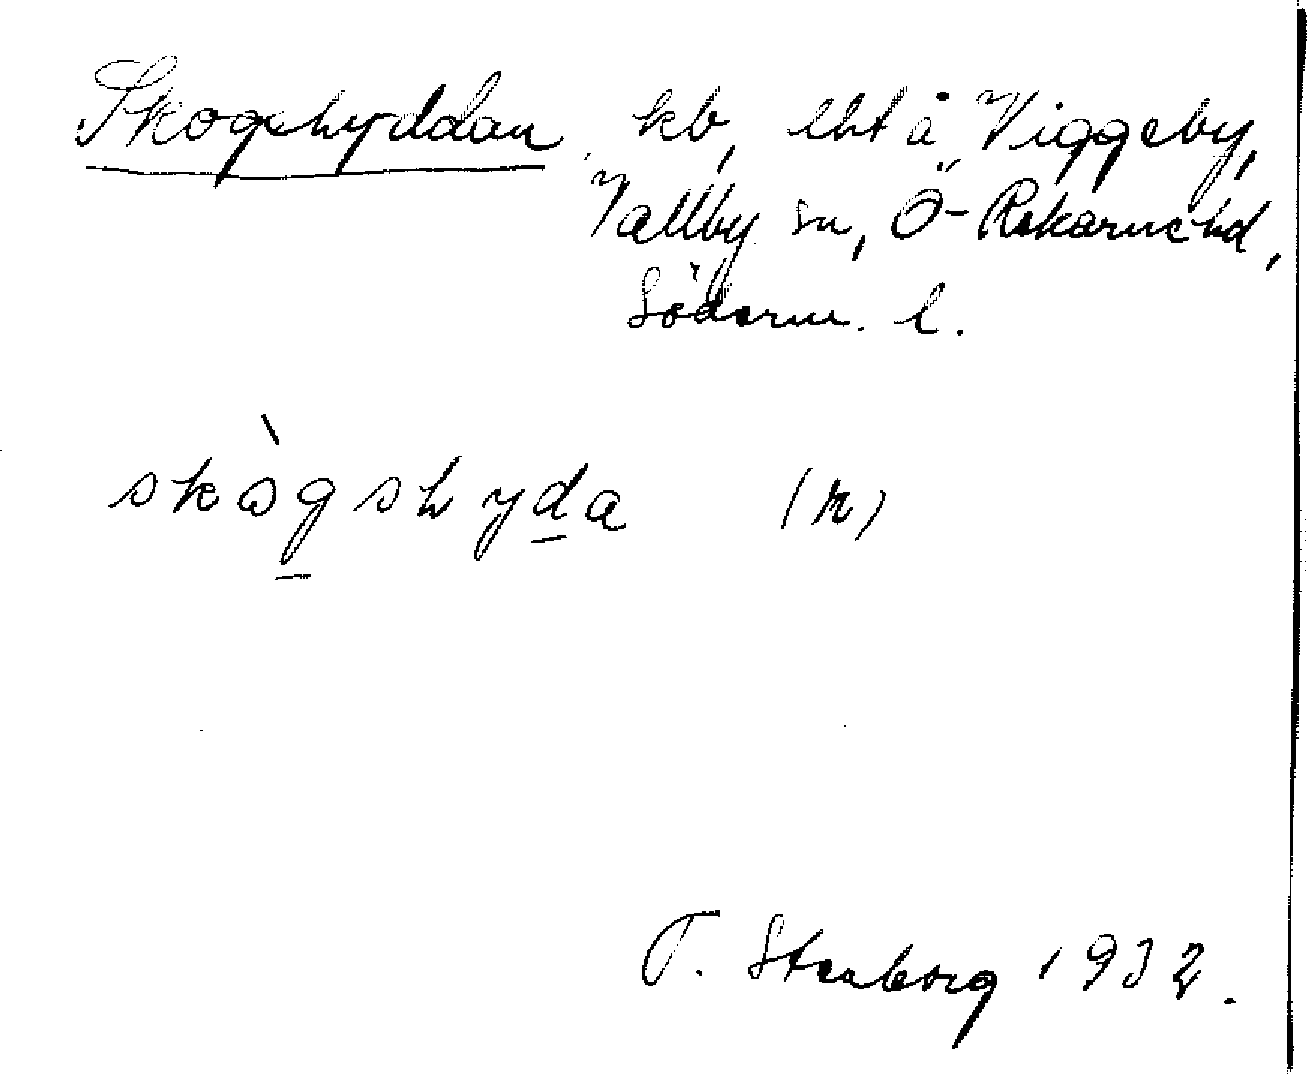 Skogshyddan, kb, lht å Viggeby,
Vallby sn, Ö-Rekarne hd,
Söderm. l.
skògshyda (r)
T. Stenberg 1932.